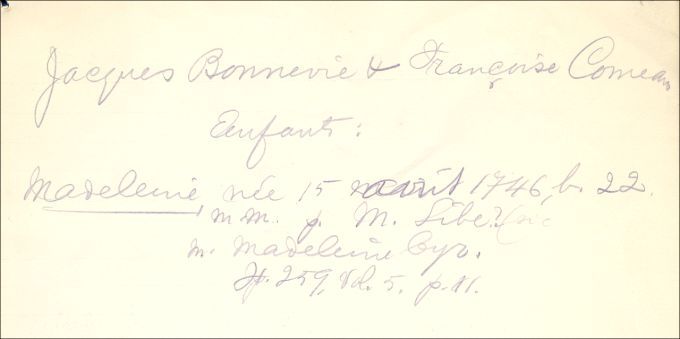 Jacques Bonnevie & Françoise Comeau
Enfants:
Madeleine, née 15 août 1746, b. 22.
m.m. p. M.
m. Madeleine Cyr.
259, Vol. 5. p. 11.